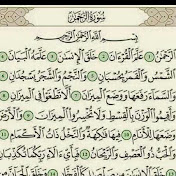 سُورَةُ الرَّحْمَٰن
بِسْمِ اللَّهِ الرَّحْمَٰنِ الرَّحِيمِ
الرَّحْمَٰنُ ١ عَلَّمَ الْقُرْآنَ ٢ خَلَقَ الْإِنسَانَ ٣ عَلَّمَهُ الْبَيَانَ ٤
الشَّمْسُ وَالْقَمَرُ بِحُسْبَانٍ ٥ وَالنَّجْمُ وَالشَّجَرُ يَسْجُدَانِ ٦
وَالسَّمَاءَ رَفَعَهَا وَوَضَعَ الْمِيزَانَ ٧ أَلَّا تَطْغَوْا فِي الْمِيزَانِ ٨
وَأَقِيمُوا الْوَزْنَ بِالْقِسْطِ وَلَا تُخْسِرُوا الْمِيزَانَ ٩ وَالْأَرْضَ
وَضَعَهَا لِلْأَنَامِ ١٠ فِيهَا فَاكِهَةٌ وَالنَّخْلُ ذَاتُ الْأَكْمَامِ ١١
وَالْحَبُّ ذُو الْعَصْفِ وَالرَّيْحَانُ ١٢ فَبِأَيِّ آلَاءِ رَبِّكُمَا تُكَذِّبَانِ ١٣